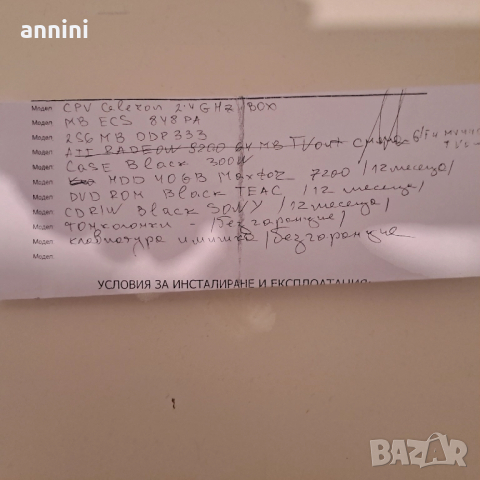 annini
Модел: CPU Celeron 2.4 GHz /BOX
Модел: MB ECS 848 PA
Модел: 256 MB DDR 333
Модел: ATI RADEON 9200 64 MB TVout
Модел: CASE Black 300W
Модел: HDD 40GB Maxtor 7200 /12 месеца/
Модел: DVD ROM Black TEAC /12 месеца/
Модел: CDR/W Black SONY /12 месеца/
Модел: тонколонки - /без гаранция/
Модел: клавиатура и мишка /без гаранция
Модел:
УСЛОВИЯ ЗА ИНСТАЛИРАНЕ И ЕКСПЛОАТАЦИЯ:
BAZAR